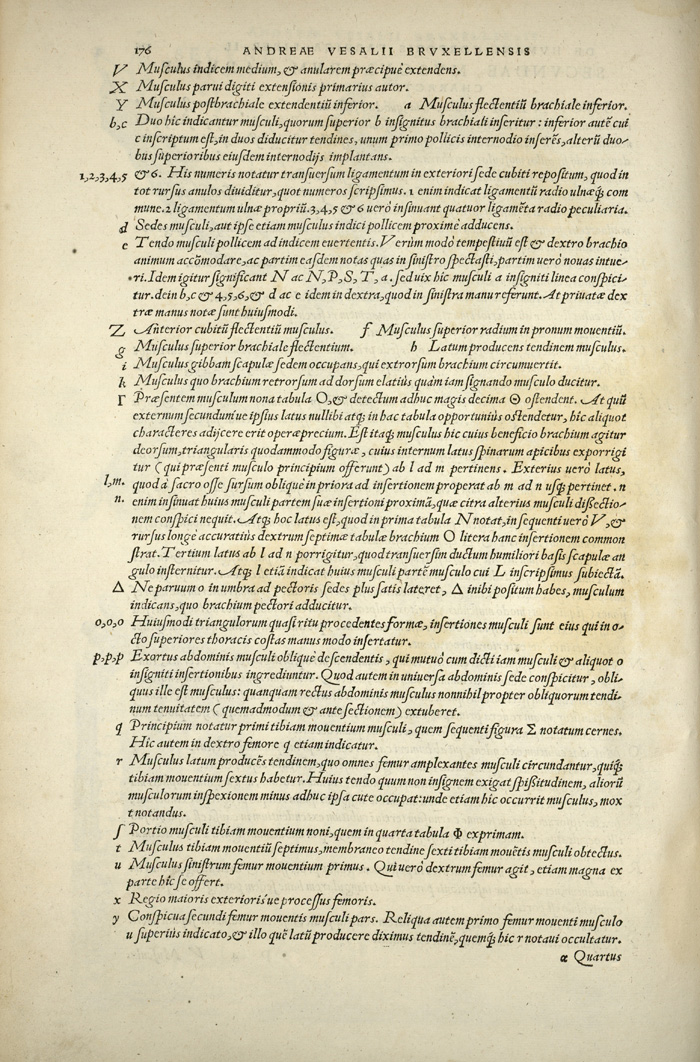 176 ANDREAE VESALII BRVXELLENSIS
V Musculus indicem medium, & anularem præcipuè extendens.
X Musculus parui digiti extensionis primarius autor.
Y Musculus postbrachiale extendentiũ inferior. a Musculus flectentiũ brachiale inferior.
b,c Duo hic indicantur musculi, quorum superior b insignitus brachiali inseritur: inferior autẽ cui
c inscriptum est, in duos diducitur tendines, unum primo pollicis internodio inserẽs, alterũ duo-
bus superioribus eiusdem internodijs implantans.
1,2,3,4,5 & 6. His numeris notatur transuersum ligamentum in exteriori sede cubiti repositum, quod in
tot rursus anulos diuiditur, quot numeros scripsimus. 1 enim indicat ligamentũ radio ulnæq́; com
mune. 2 ligamentum ulnæ propriũ. 3,4,5 & 6 uerò insinuant quatuor ligamẽta radio peculiaria.
d Sedes musculi, aut ipse etiam musculus indici pollicem proximè adducens.
e Tendo musculi pollicem ad indicem euertentis. Verùm modò tempestiuũ est & dextro brachio
animum accõmodare, ac partim easdem notas quas in sinistro spectasti, partim uerò nouas intue-
ri. Idem igitur significant N ac N, P, S, T, a. seduix hic musculi a insigniti linea conspici-
tur. dein b, c & 4,5,6, & d ac e idem in dextra, quod in sinistra manu referunt. At priuatæ dex
træ manus notæ sunt huiusmodi.
Z Anterior cubitũ flectentiũ musculus. f Musculus superior radium in pronum mouentiũ.
g Musculus superior brachiale flectentium. h Latum producens tendinem musculus.
i Musculus gibbam scapulæ sedem occupans, qui extrorsum brachium circumuertit.
k Musculus quo brachium retrorsum ad dorsum elatiùs quàm iam signando musculo ducitur.
Γ Præsentem musculum nona tabula O, & detectum adhuc magis decima Θ ostendent. At quũ
externum secundumúe ipsius latus nullibi atq́; in hac tabula opportuniùs ostendetur, hic aliquot
characteres adijcere erit operæprecium. Est itaq́; musculus hic cuius beneficio brachium agitur
deorsum, triangularis quodammodo figuræ, cuius internum latus spinarum apicibus exporrigi
tur ( qui præsenti musculo principium offerunt) ab l ad m pertinens. Exterius uerò latus,
l,m. quod à sacro osse sursum obliquè in priora ad insertionem properat ab m ad n usq́; pertinet. n
n. enim insinuat huius musculi partem suæ insertioni proximã, quæ citra alterius musculi dißectio-
nem conspici nequit. Atq́; hoc latus est, quod in prima tabula N notat, in sequenti uerò V, &
rursus longè accuratiùs dextrum septimæ tabulæ brachium O litera hanc insertionem common
strat. Tertium latus ab l ad n porrigitur, quod transuersim ductum humiliori basis scapulæ an
gulo insternitur. Atq́; l etiã indicat huius musculi partẽ musculo cui L inscripsimus subiectã.
Δ Ne paruum o in umbra ad pectoris sedes plus satis lateret, Δ inibi positum habes, musculum
indicans, quo brachium pectori adducitur.
o,o,o Huiusmodi triangulorum quasi ritu procedentes formæ, insertiones musculi sunt eius qui in o-
cto superiores thoracis costas manus modo insertatur.
p,p,p Exortus abdominis musculi obliquè descendentis, qui mutuò cum dicti iam musculi & aliquot o
insigniti insertionibus ingrediuntur. Quod autem in uniuersa abdominis sede conspicitur, obli-
quus ille est musculus: quanquam rectus abdominis musculus nonnihil propter obliquorum tendi
num tenuitatem ( quemadmodum & ante sectionem) extuberet.
q Principium notatur primi tibiam mouentium musculi, quem sequenti figura Σ notatum cernes.
Hic autem in dextro femore q etiam indicatur.
r Musculus latum producẽs tendinem, quo omnes femur amplexantes musculi circundantur, quiq́;
tibiam mouentium sextus habetur. Huius tendo quum non insignem exigat spißitudinem, aliorũ
musculorum inspexionem minus adhuc ipsa cute occupat: unde etiam hic occurrit musculus, mox
t notandus.
ſ Portio musculi tibiam mouentium noni, quem in quarta tabula Φ exprimam.
t Musculus tibiam mouentiũ septimus, membraneo tendine sexti tibiam mouẽtis musculi obtectus.
u Musculus sinistrum femur mouentium primus. Qui uerò dextrum femur agit, etiam magna ex
parte hîc se offert.
x Regio maioris exteriorisúe processus femoris.
y Conspicua secundi femur mouentis musculi pars. Reliqua autem primo femur mouenti musculo
u superiùs indicato, & illo quẽ latũ producere diximus tendinẽ, quemq́; hic r notaui occultatur.
α Quartus